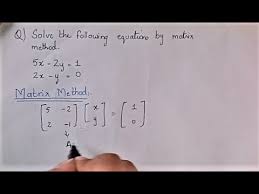 Q) Solve the following equations by matrix
method.
5x - 2y = 1
2x - y = 0
Matrix Method:
[5 -2] [x] = [1]
[2 -1] [y] = [0]
↓
A